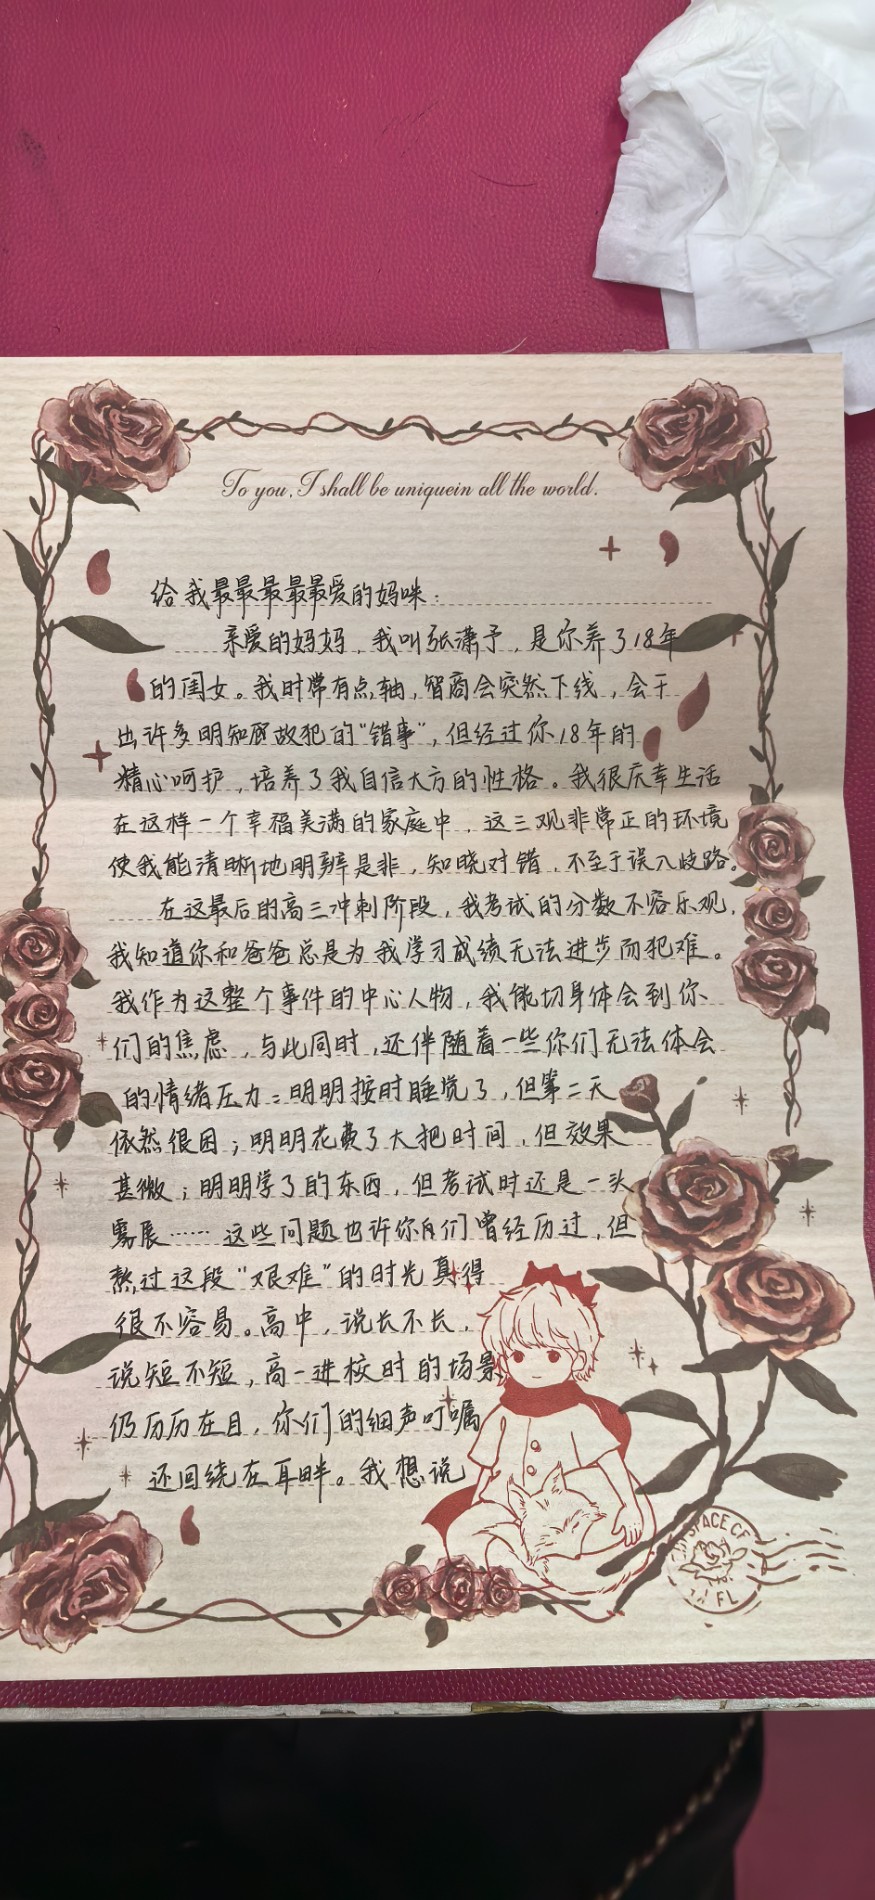 To you, I shall be uniquein all the world.
给我最最最最最爱的妈咪:
亲爱的妈妈,我叫张潇予,是你养了18年
的闺女。我时常有点轴,智商会突然下线,会干
出许多明知故犯的“错事”,但经过你18年的
精心呵护,培养了我自信大方的性格。我很庆幸生活
在这样一个幸福美满的家庭中,这三观非常正的环境
使我能清晰地明辨是非,知晓对错,不至于误入歧路。
在这最后的高三冲刺阶段,我考试的分数不容乐观,
我知道你和爸爸总是为我学习成绩无法进步而犯难。
我作为这整个事件的中心人物,我能切身体会到你
们的焦虑,与此同时,还伴随着一些你们无法体会
的情绪压力:明明按时睡觉了,但第二天
依然很困;明明花费了大把时间,但效果
甚微;明明学了的东西,但考试时还是一头
雾……这些问题也许你们曾经历过,但
熬过这段“艰难”的时光真得
很不容易。高中,说长不长,
说短不短,高一进校时的场景
仍历历在目,你们的细声叮嘱
还回绕在耳畔。我想说
SPACE CF
FL